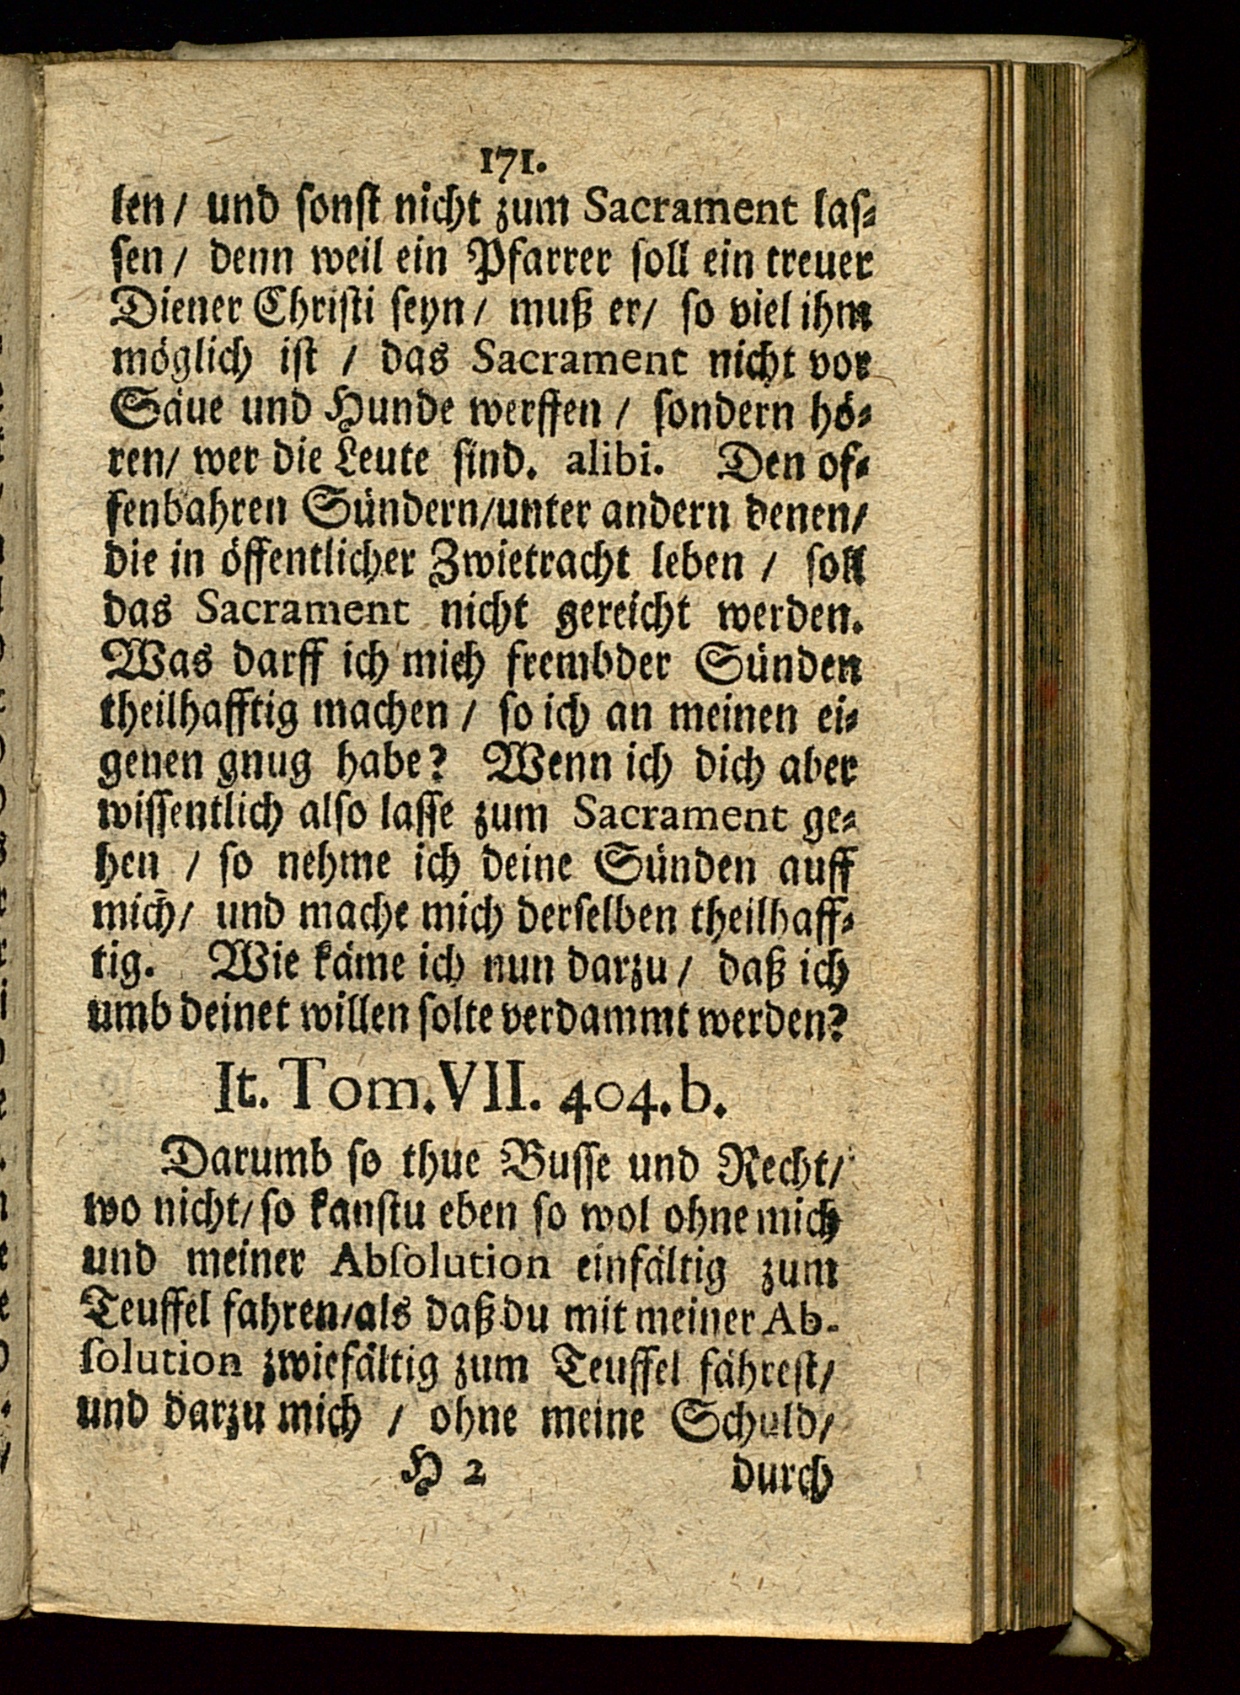 171.
len / und sonst nicht zum Sacrament las⸗
sen / denn weil ein Pfarrer soll ein treuer
Diener Christi seyn / muß er / so viel ihm
möglich ist / das Sacrament nicht vor
Säue und Hunde werffen / sondern hö⸗
ren / wer die Leute sind. alibi. Den of⸗
fenbahren Sündern / unter andern denen /
die in öffentlicher Zwietracht leben / soll
das Sacrament nicht gereicht werden.
Was darff ich mich frembder Sünden
theilhafftig machen / so ich an meinen ei⸗
genen gnug habe? Wenn ich dich aber
wissentlich also lasse zum Sacrament ge⸗
hen / so nehme ich deine Sünden auff
mich / und mache mich derselben theilhaff⸗
tig. Wie käme ich nun darzu / daß ich
umb deinet willen solte verdammt werden?
It. Tom. VII. 404. b.
Darumb so thue Busse und Recht /
wo nicht / so kanstu eben so wol ohne mich
und meiner Absolution einfältig zum
Teuffel fahren / als daß du mit meiner Ab-
solution zwiefältig zum Teuffel fährest /
und darzu mich / ohne meine Schuld /
H 2 durch